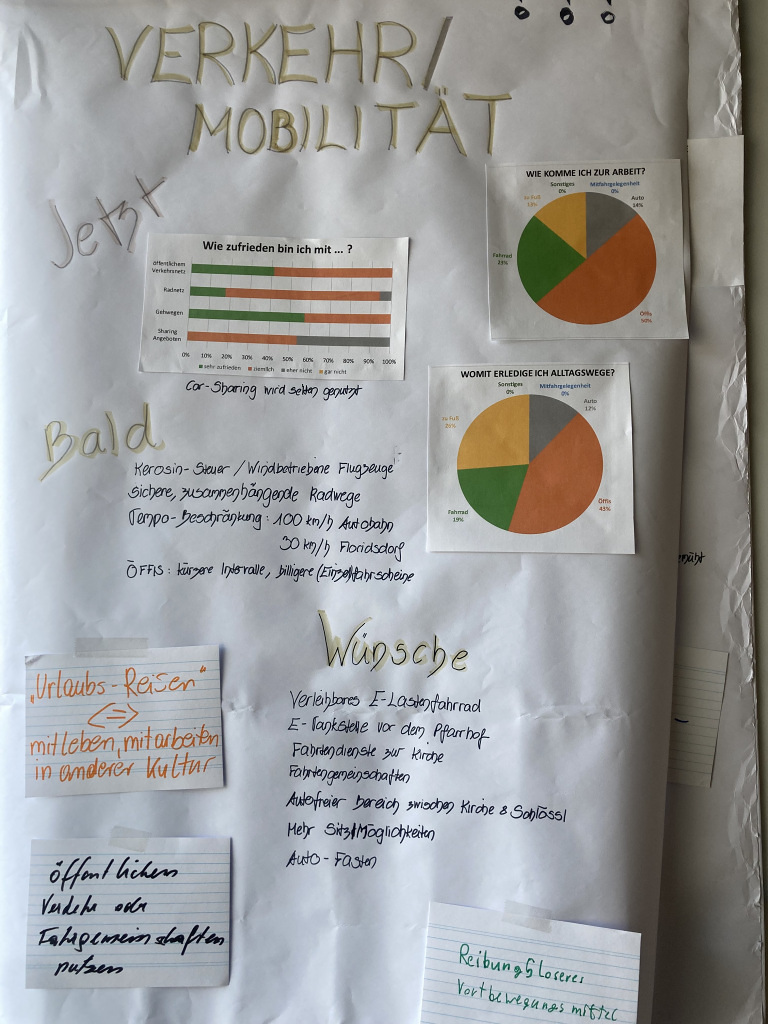 VERKEHR/
MOBILITÄT
Jetzt
WIE KOMME ICH ZUR ARBEIT?
Sonstiges
0%
Mitfahrgelegenheit
0%
Auto
14%
zu Fuß
13%
Fahrrad
23%
Öffis
50%
Wie zufrieden bin ich mit ... ?
öffentlichem
Verkehrsnetz
Radnetz
Gehwegen
Sharing
Angeboten
0% 10% 20% 30% 40% 50% 60% 70% 80% 90% 100%
sehr zufrieden ziemlich eher nicht gar nicht
Car-Sharing wird selten genutzt
WOMIT ERLEDIGE ICH ALLTAGSWEGE?
Sonstiges
0%
Mitfahrgelegenheit
0%
Auto
12%
zu Fuß
26%
Fahrrad
19%
Öffis
43%
Bald
Kerosin-Steuer / Windbetriebene Flugzeuge
Sichere, zusammenhängende Radwege
Tempo-Beschränkung: 100 km/h Autobahn
30 km/h Floridsdorf
ÖFFIS: kürzere Intervalle, billigere (Einzel)fahrscheine
Wünsche
Verleihbares E-Lastenfahrrad
E-Tankstelle vor dem Pfarrhof
Fahrtendienste zur Kirche
Fahrtengemeinschaften
Autofreier Bereich zwischen Kirche & Schlössl
Mehr Sitz/Möglichkeiten
Auto-Fasten
"Urlaubs-Reisen"
<=>
mitleben, mitarbeiten
in anderer Kultur
öffentlichen
Verkehr oder
Fahrgemeinschaften
nutzen
Reibungsloseres
Vortbewegungsmittel